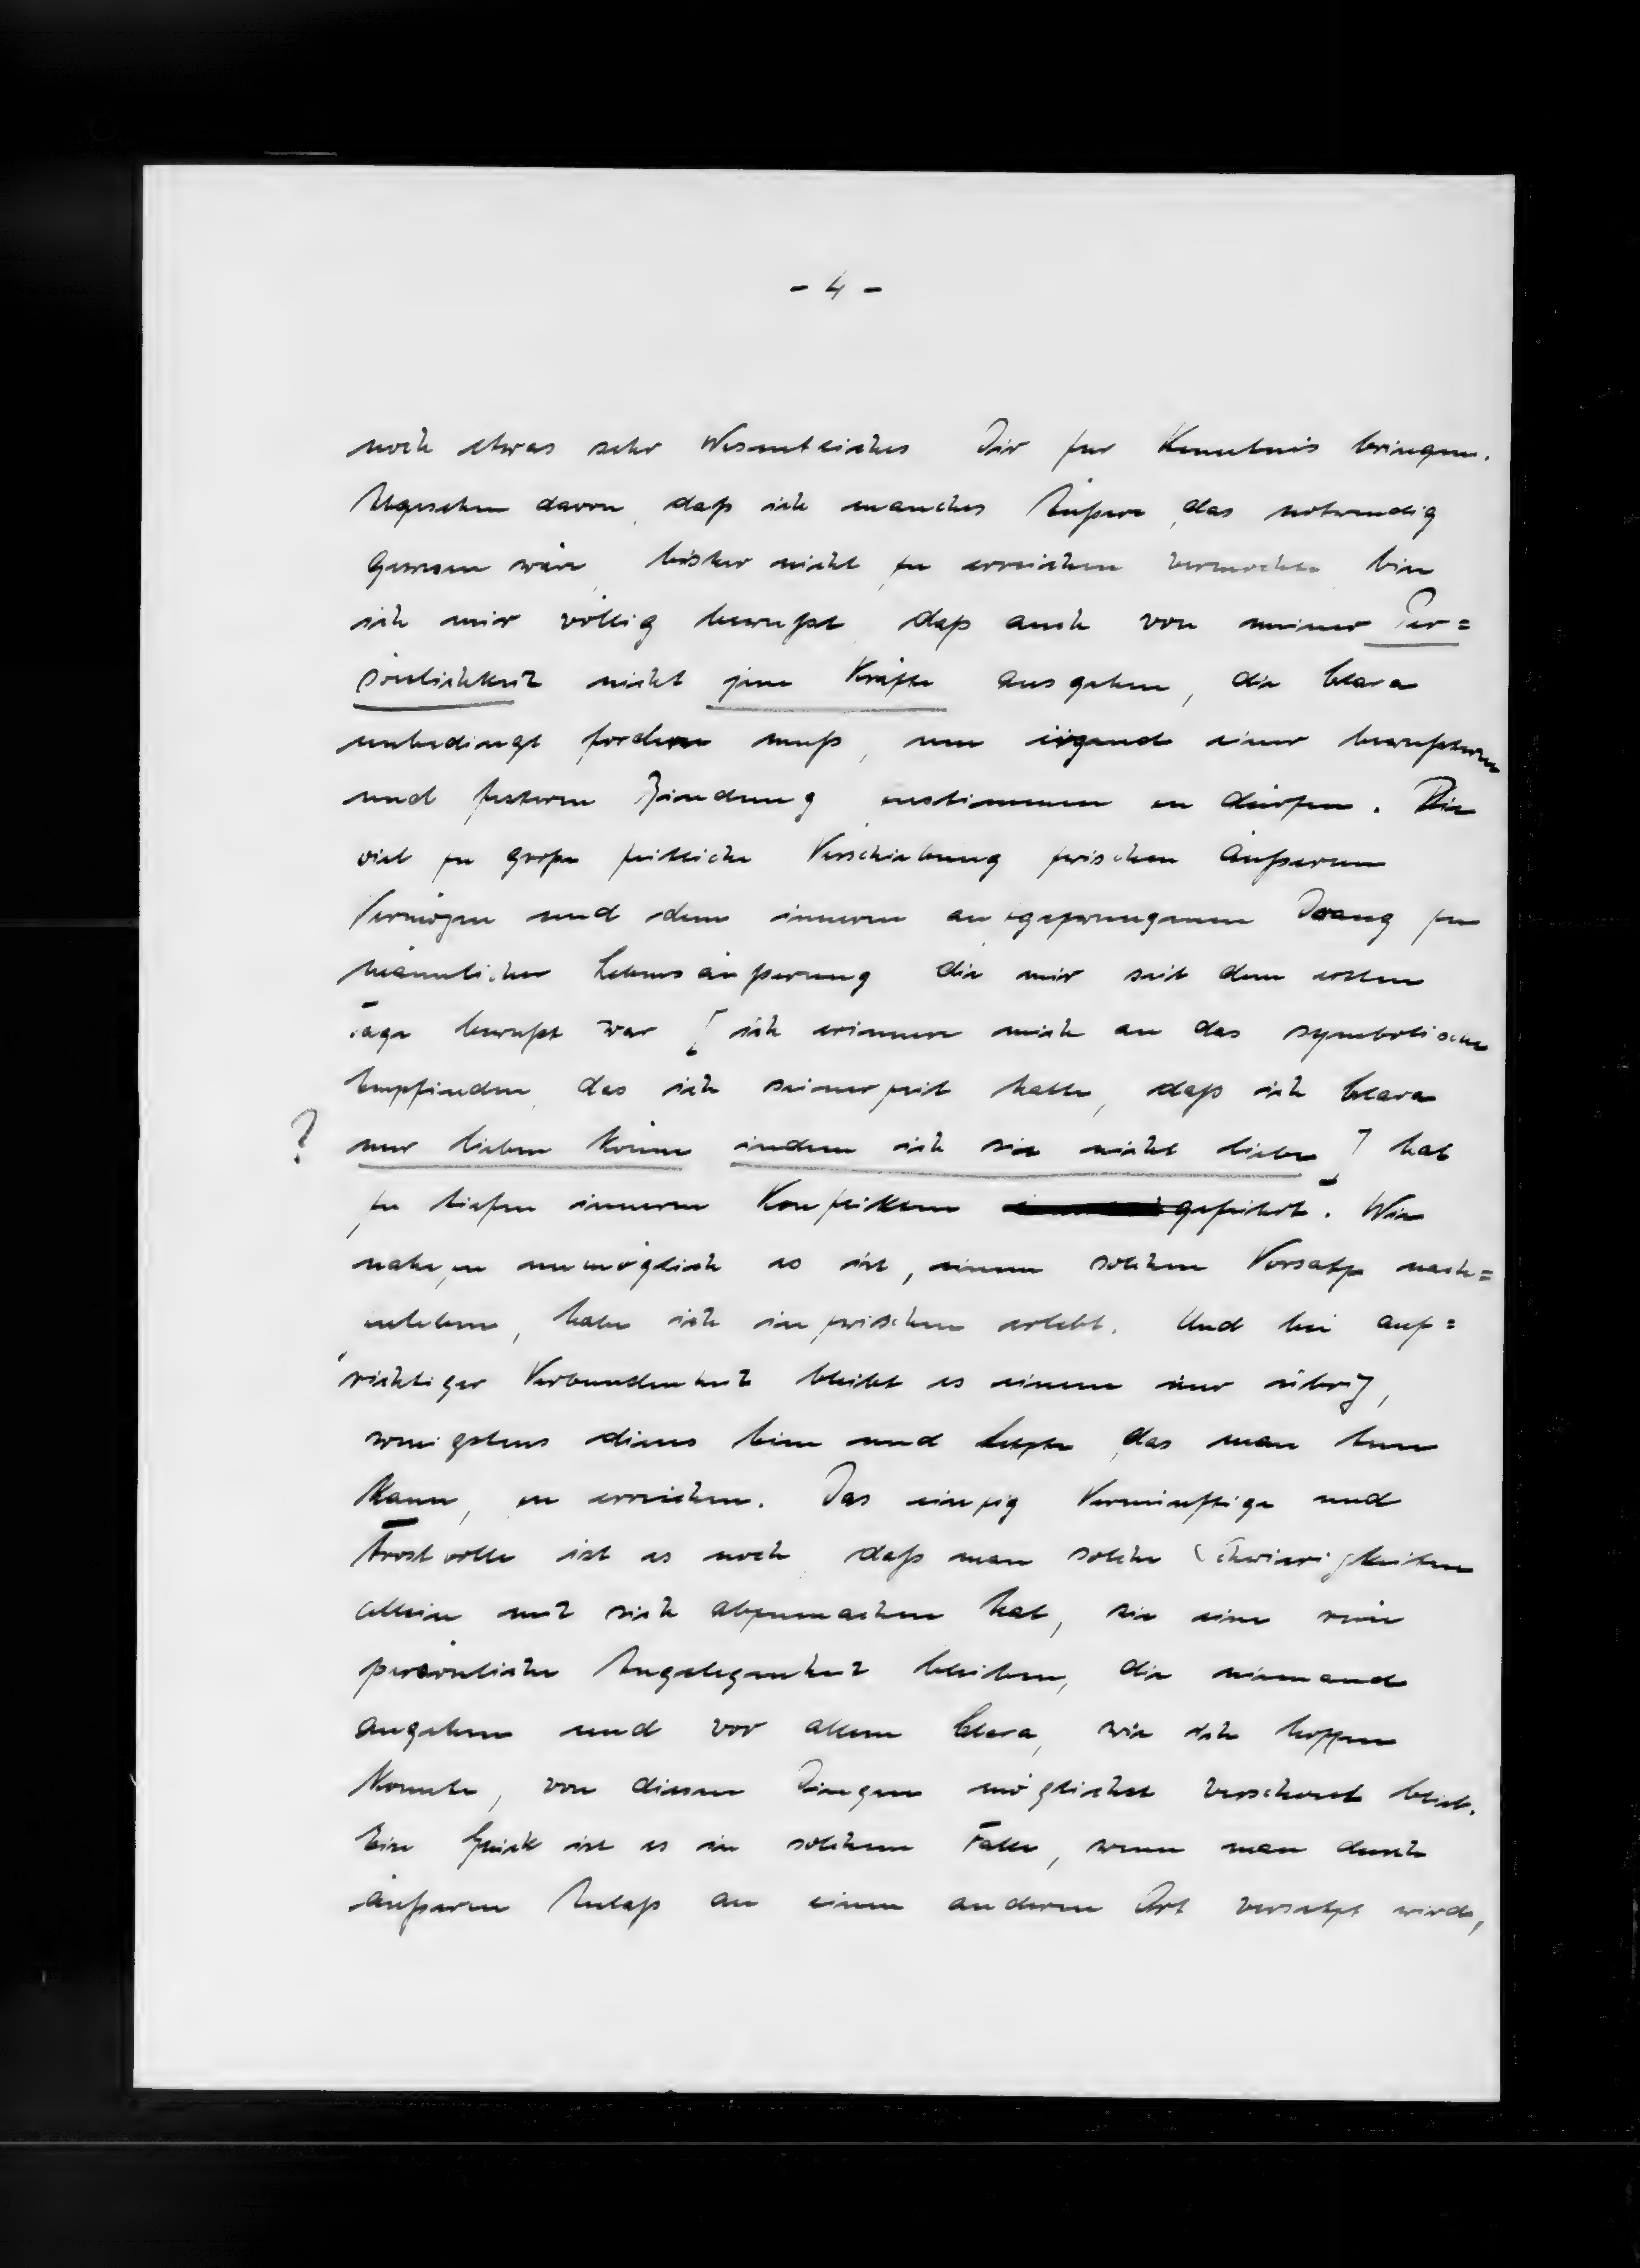 - 4 -
noch etwas sehr Wesentliches Dir zur Kenntnis bringen.
Abgesehen davon, daß ich manches Äußere, das notwendig
gewesen wäre, bisher nicht zu erreichen vermochte bin
ich mir völlig bewußt, daß auch von meiner Per=
sönlichkeit nicht jene Kräfte ausgehen, die Clara
unbedingt fordern muß, um irgend einer bewußteren
und festeren Bindung zustimmen zu dürfen. Die
viel zu große zeitliche Verschiebung zwischen äußerem
Vermögen und dem inneren Drang zu
männlicher Lebensäußerung die mir seit dem ersten
Tage bewußt war [ ich erinnere mich an das symbolische
Empfinden, das ich seinerzeit hatte, daß ich Clara
? nur lieben könne indem ich sie nicht liebe ] hat
zu tiefen inneren Konflikten geführt. Wie
nahezu unmöglich es ist, einem solchen Vorsatz nach=
zuleben, habe ich inzwischen erlebt. Und bei auf=
richtiger Verbundenheit bleibt es einem nur übrig,
wenigstens dieses Eine und Letzte, das man tun
kann, zu erreichen. Das einzig Vernünftige und
Trostvolle ist es noch, daß man solche Schwierigkeiten
allein mit sich abzumachen hat, sie eine rein
persönliche Angelegenheit bleiben, die niemand
angehen und vor allem Clara, wie ich hoffen
konnte, von diesen Dingen möglichst verschont blieb.
Ein Glück ist es in solchem Falle, wenn man durch
äußeren Anlaß an einen anderen Ort versetzt wird,